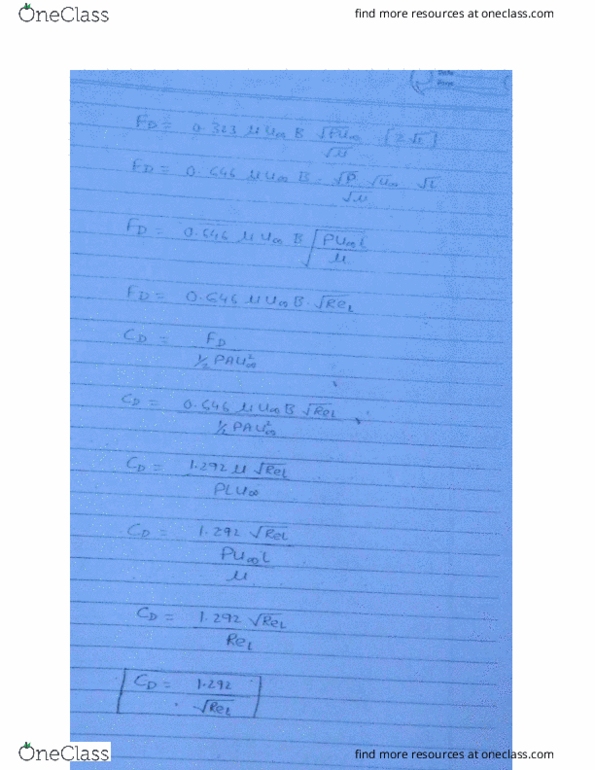 OneClass
find more resources at oneclass.com
F_D = 0.323 μ U∞ B √(ρU∞)/√μ [2√L]
F_D = 0.646 μ U∞ B · √ρ √U∞ √L / √μ
F_D = 0.646 μ U∞ B √(ρU∞L/μ)
F_D = 0.646 μ U∞ B · √Re_L
C_D = F_D / ½ρAU∞²
C_D = 0.646 μ U∞ B √Re_L / ½ρAU∞²
C_D = 1.292 μ √Re_L / ρLU∞
C_D = 1.292 √Re_L / (ρU∞L/μ)
C_D = 1.292 √Re_L / Re_L
C_D = 1.292 / √Re_L
OneClass
find more resources at oneclass.com